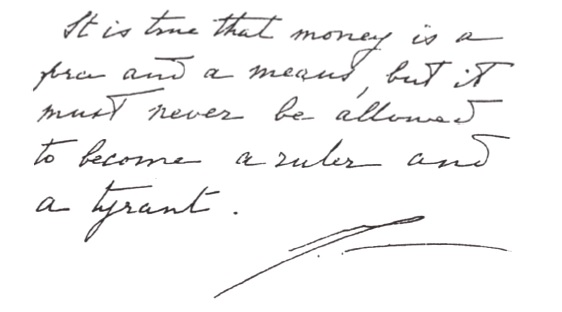 It is true that money is a
and a means, but it
must never be allowed
to become a ruler and
a tyrant.